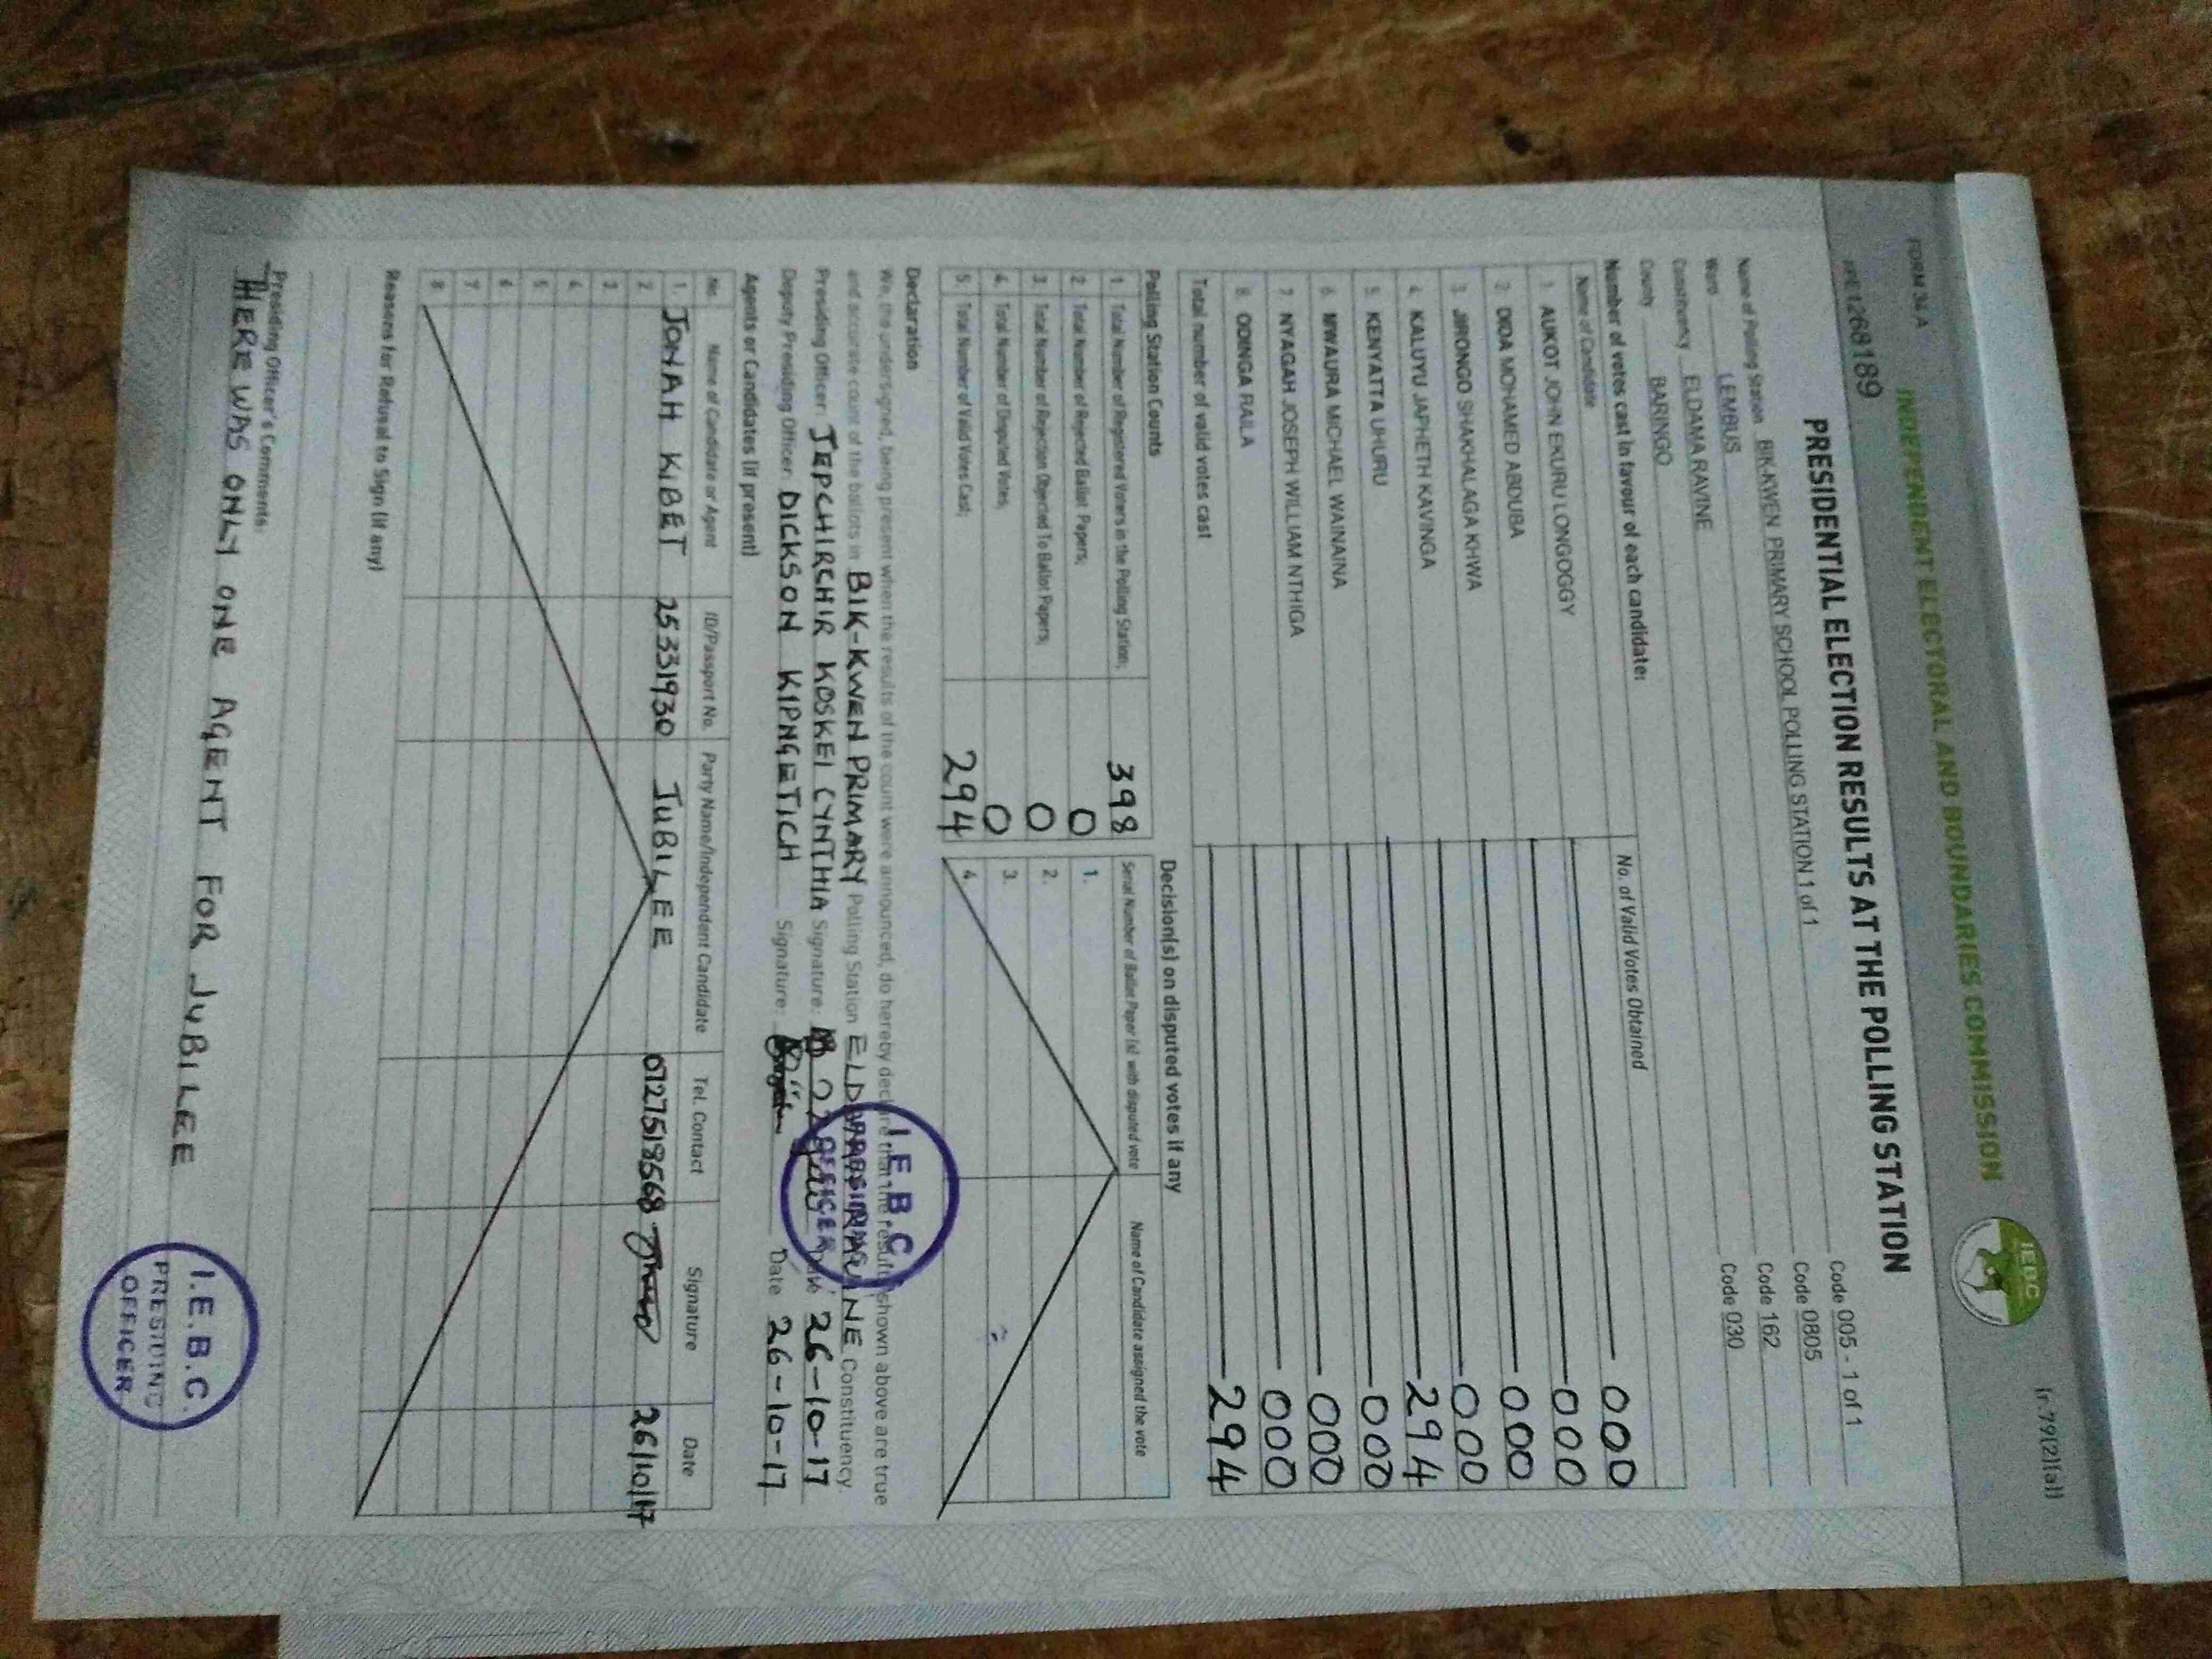 FORM 34 A
INDEPENDENT ELECTORAL AND BOUNDARIES COMMISSION
IEBC
(r.79(2)(a))
1268189
PRESIDENTIAL ELECTION RESULTS AT THE POLLING STATION
Name of Polling Station BIK-KWEN PRIMARY SCHOOL POLLING STATION 1 of 1 Code 005 - 1 of 1
Ward LEMBUS Code 0805
Constituency ELDAMA RAVINE Code 162
County BARINGO Code 030
Number of votes cast in favour of each candidate:
Name of Candidate No. of Valid Votes Obtained
1. AUKOT JOHN EKURU LONGOGGY 000
2. DIDA MOHAMED ABDUBA 000
3. JIRONGO SHAKHALAGA KHWA 000
4. KALUYU JAPHETH KAVINGA 000
5. KENYATTA UHURU 294
6. MWAURA MICHAEL WAINAINA 000
7. NYAGAH JOSEPH WILLIAM NTHIGA 000
8. ODINGA RAILA 000
Total number of valid votes cast 294
Polling Station Counts
1 Total Number of Registered Voters in the Polling Station; 398
2 Total Number of Rejected Ballot Papers; 0
3 Total Number of Rejection Objected To Ballot Papers; 0
4 Total Number of Disputed Votes; 0
5 Total Number of Valid Votes Cast; 294
Decision(s) on disputed votes if any
Serial Number of Ballot Paper (s) with disputed vote Name of Candidate assigned the vote
1.
2.
3.
4.
Declaration
We, the undersigned, being present when the results of the count were announced, do hereby declare that the results shown above are true
and accurate count of the ballots in BIK-KWEN PRIMARY Polling Station ELDAMA RAVINE Constituency.
Presiding Officer: JEPCHIRCHIR KOSKEI CYNTHIA Signature: Date 26-10-17
Deputy Presiding Officer: DICKSON KIPNGETICH Signature: Date 26-10-17
I.E.B.C
PRESIDING
OFFICER
Agents or Candidates (if present)
No. Name of Candidate or Agent ID/Passport No. Party Name/Independent Candidate Tel. Contact Signature Date
1. JONAH KIBET 25331930 JUBILEE 0727518568 26/10/17
2
3
4
5
6
7
8
Reasons for Refusal to Sign (if any)
Presiding Officer's Comments:
THERE WAS ONLY ONE AGENT FOR JUBILEE
I.E.B.C.
PRESIDING
OFFICER